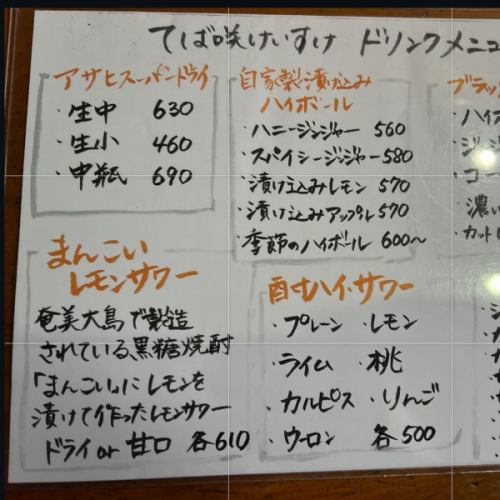 てば咲けいすけ ドリンクメニュ
アサヒスーパードライ
・生中 630
・生小 460
・中瓶 690
自家製漬け込み
ハイボール
・ハニージンジャー 560
・スパイシージンジャー 580
・漬け込みレモン 570
・漬け込みアップル 570
・季節のハイボール 600〜
ブラッ
・ハイボ
・コー
・濃い
・カット
まんこい
レモンサワー
奄美大島で製造
されている黒糖焼酎
「まんこい」にレモンを
漬けて作ったレモンサワー
ドライor甘口 各610
酎ハイ・サワー
・プレーン ・レモン
・ライム ・桃
・カルピス ・りんご
・ウーロン 各500